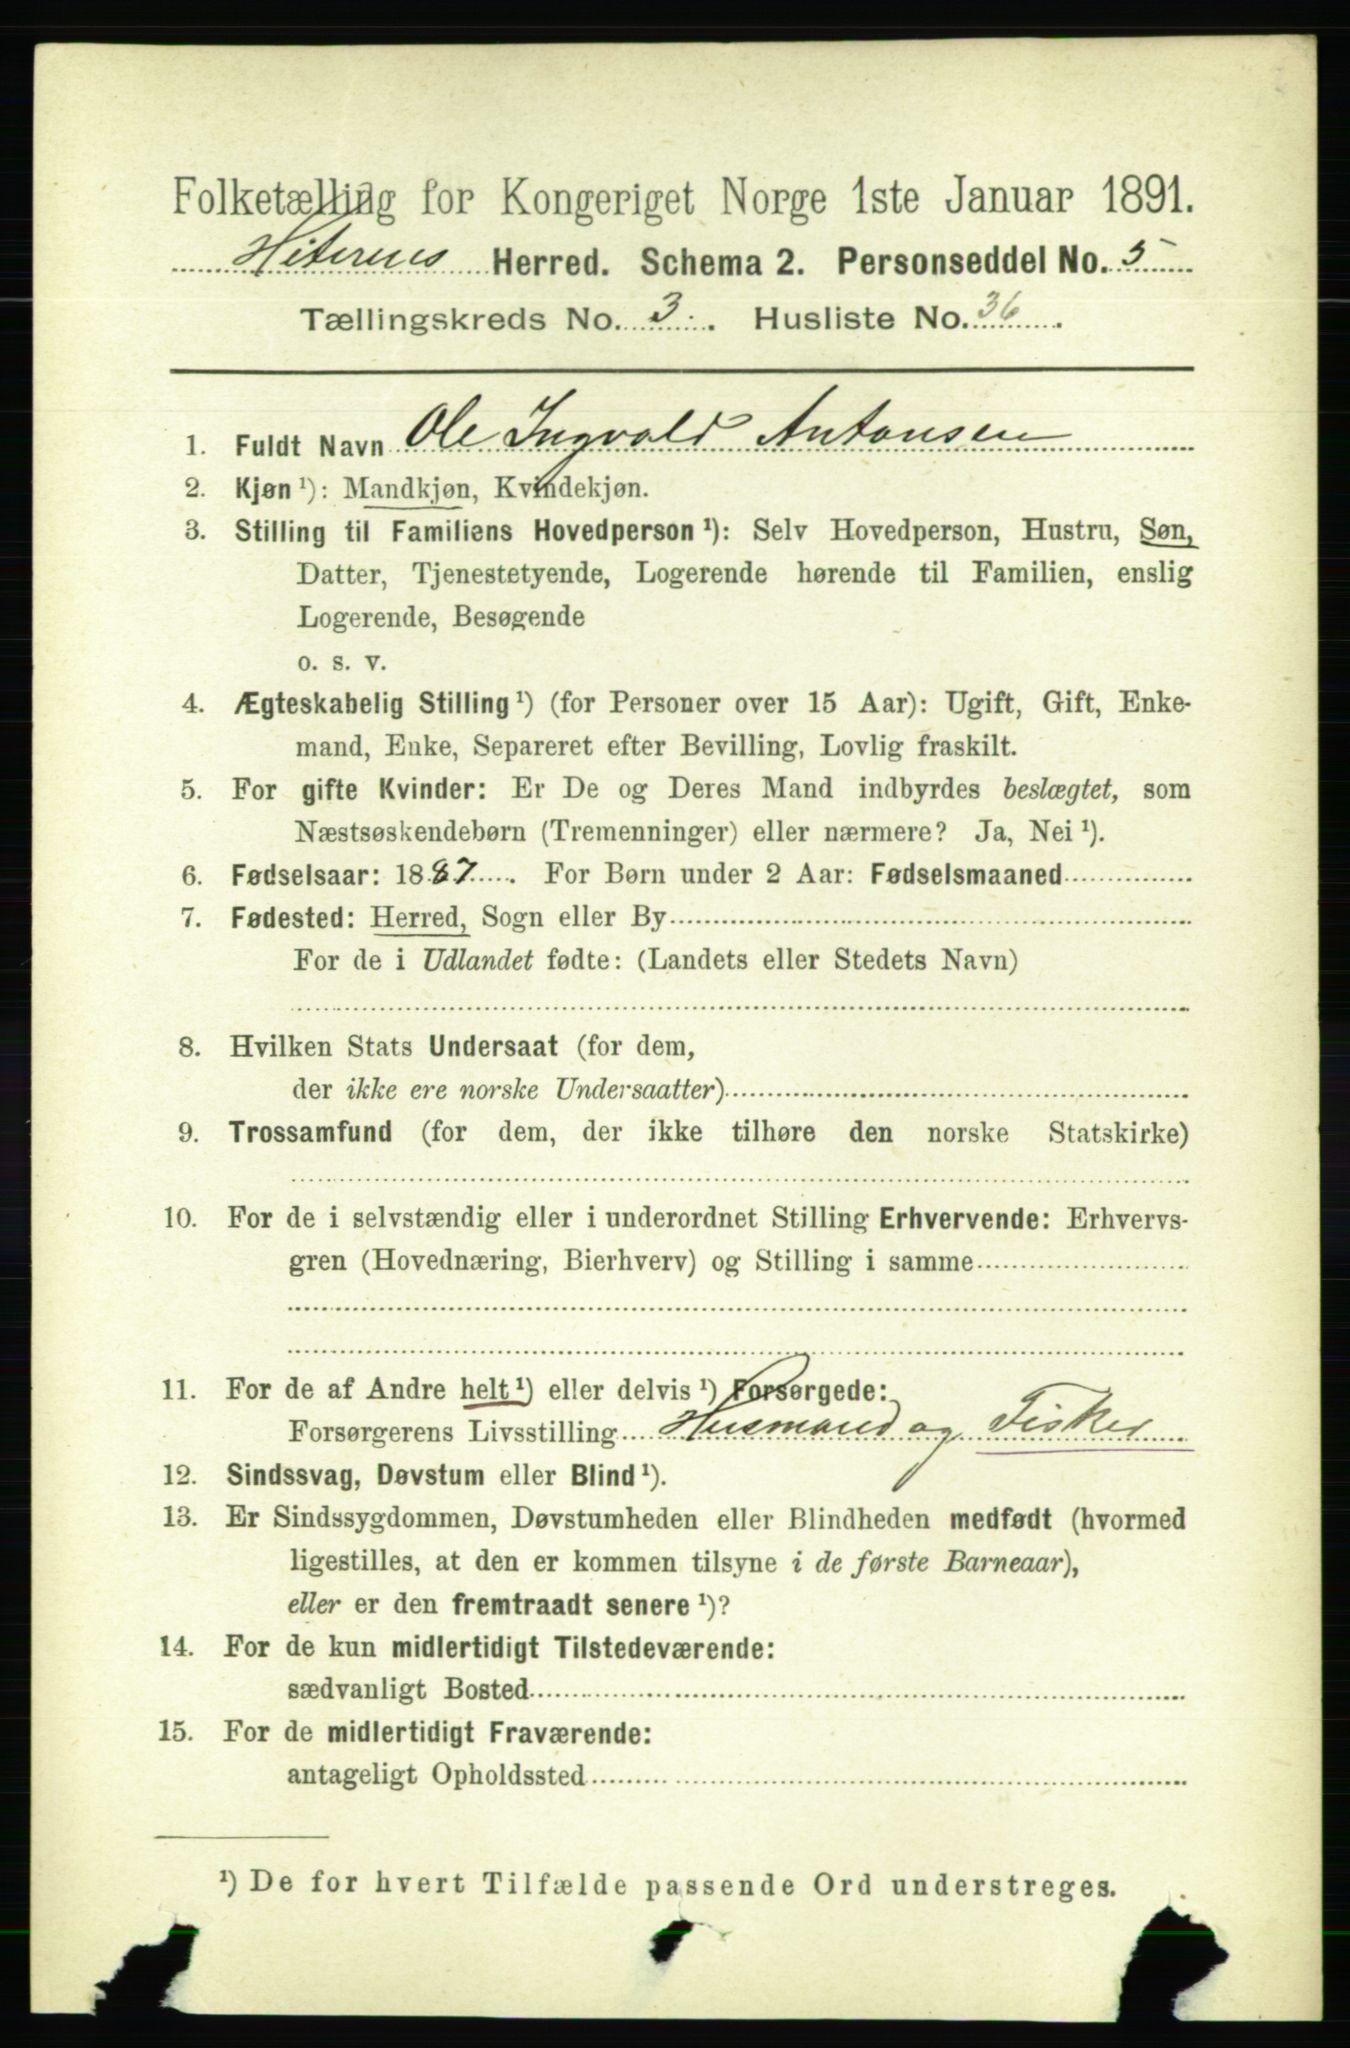 Folketælling for Kongeriget Norge 1ste Januar 1891.
Hiterens Herred. Schema 2. Personseddel No. 5
Tællingskreds No. 3. Husliste No. 36.
1. Fuldt Navn Ole Ingvald Antonsen
2. Kjøn ¹): Mandkjøn, Kvindekjøn.
3. Stilling til Familiens Hovedperson ¹): Selv Hovedperson, Hustru, Søn,
Datter, Tjenestetyende, Logerende hørende til Familien, enslig
Logerende, Besøgende
o. s. v.
4. Ægteskabelig Stilling ¹) (for Personer over 15 Aar): Ugift, Gift, Enke-
mand, Enke, Separeret efter Bevilling, Lovlig fraskilt.
5. For gifte Kvinder: Er De og Deres Mand indbyrdes beslægtet, som
Næstsøskendebørn (Tremenninger) eller nærmere? Ja, Nei ¹).
6. Fødselsaar: 1887. For Børn under 2 Aar: Fødselsmaaned
7. Fødested: Herred, Sogn eller By
For de i Udlandet fødte: (Landets eller Stedets Navn)
8. Hvilken Stats Undersaat (for dem,
der ikke ere norske Undersaatter)
9. Trossamfund (for dem, der ikke tilhøre den norske Statskirke)
10. For de i selvstændig eller i underordnet Stilling Erhvervende: Erhvervs-
gren (Hovednæring, Bierhverv) og Stilling i samme
11. For de af Andre helt ¹) eller delvis ¹) Forsørgede:
Forsørgerens Livsstilling Husmand og Fisker
12. Sindssvag, Døvstum eller Blind ¹).
13. Er Sindssygdommen, Døvstumheden eller Blindheden medfødt (hvormed
ligestilles, at den er kommen tilsyne i de første Barneaar),
eller er den fremtraadt senere ¹)?
14. For de kun midlertidigt Tilstedeværende:
sædvanligt Bosted
15. For de midlertidigt Fraværende:
antageligt Opholdssted
¹) De for hvert Tilfælde passende Ord understreges.